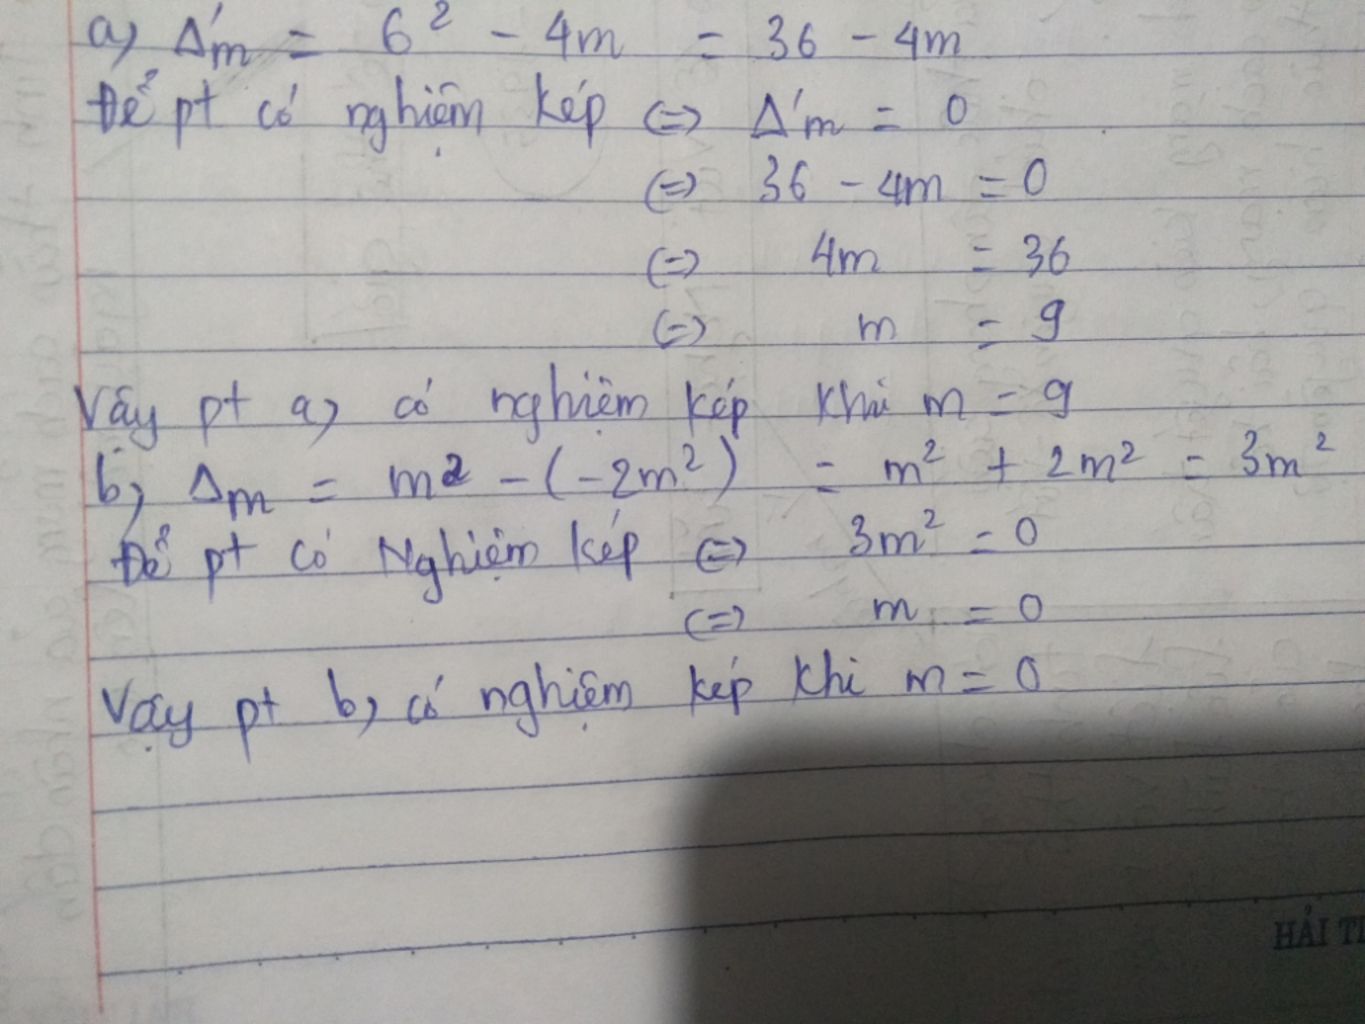 a) Δ'm = 6² - 4m = 36 - 4m
Để pt có nghiệm kép (=) Δ'm = 0
(=) 36 - 4m = 0
(=) 4m = 36
(=) m = 9
Vậy pt a) có nghiệm kép khi m = 9
b) Δm = m² - (-2m²) = m² + 2m² = 3m²
Để pt có Nghiệm kép (=) 3m² = 0
(=) m = 0
Vậy pt b) có nghiệm kép khi m = 0
HẢI